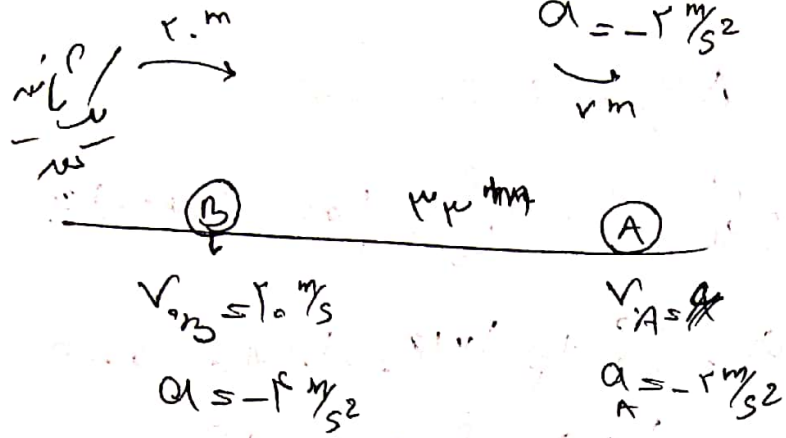 ۲۰m
a = -۲ m/s2
۷ m
B
۳۳
A
V.B = ۲۰ m/s
V.A =
a = -۴ m/s2
aA = -۲ m/s2